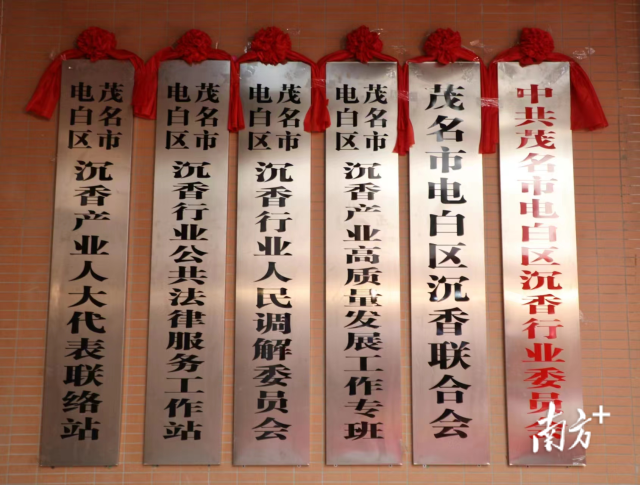 茂名市
电白区
沉香产业人大代表联络站
茂名市
电白区
沉香行业公共法律服务工作站
茂名市
电白区
沉香行业人民调解委员会
茂名市
电白区
沉香产业高质量发展工作专班
茂名市电白区沉香联合会
中共茂名市电白区沉香行业委员会
南方+